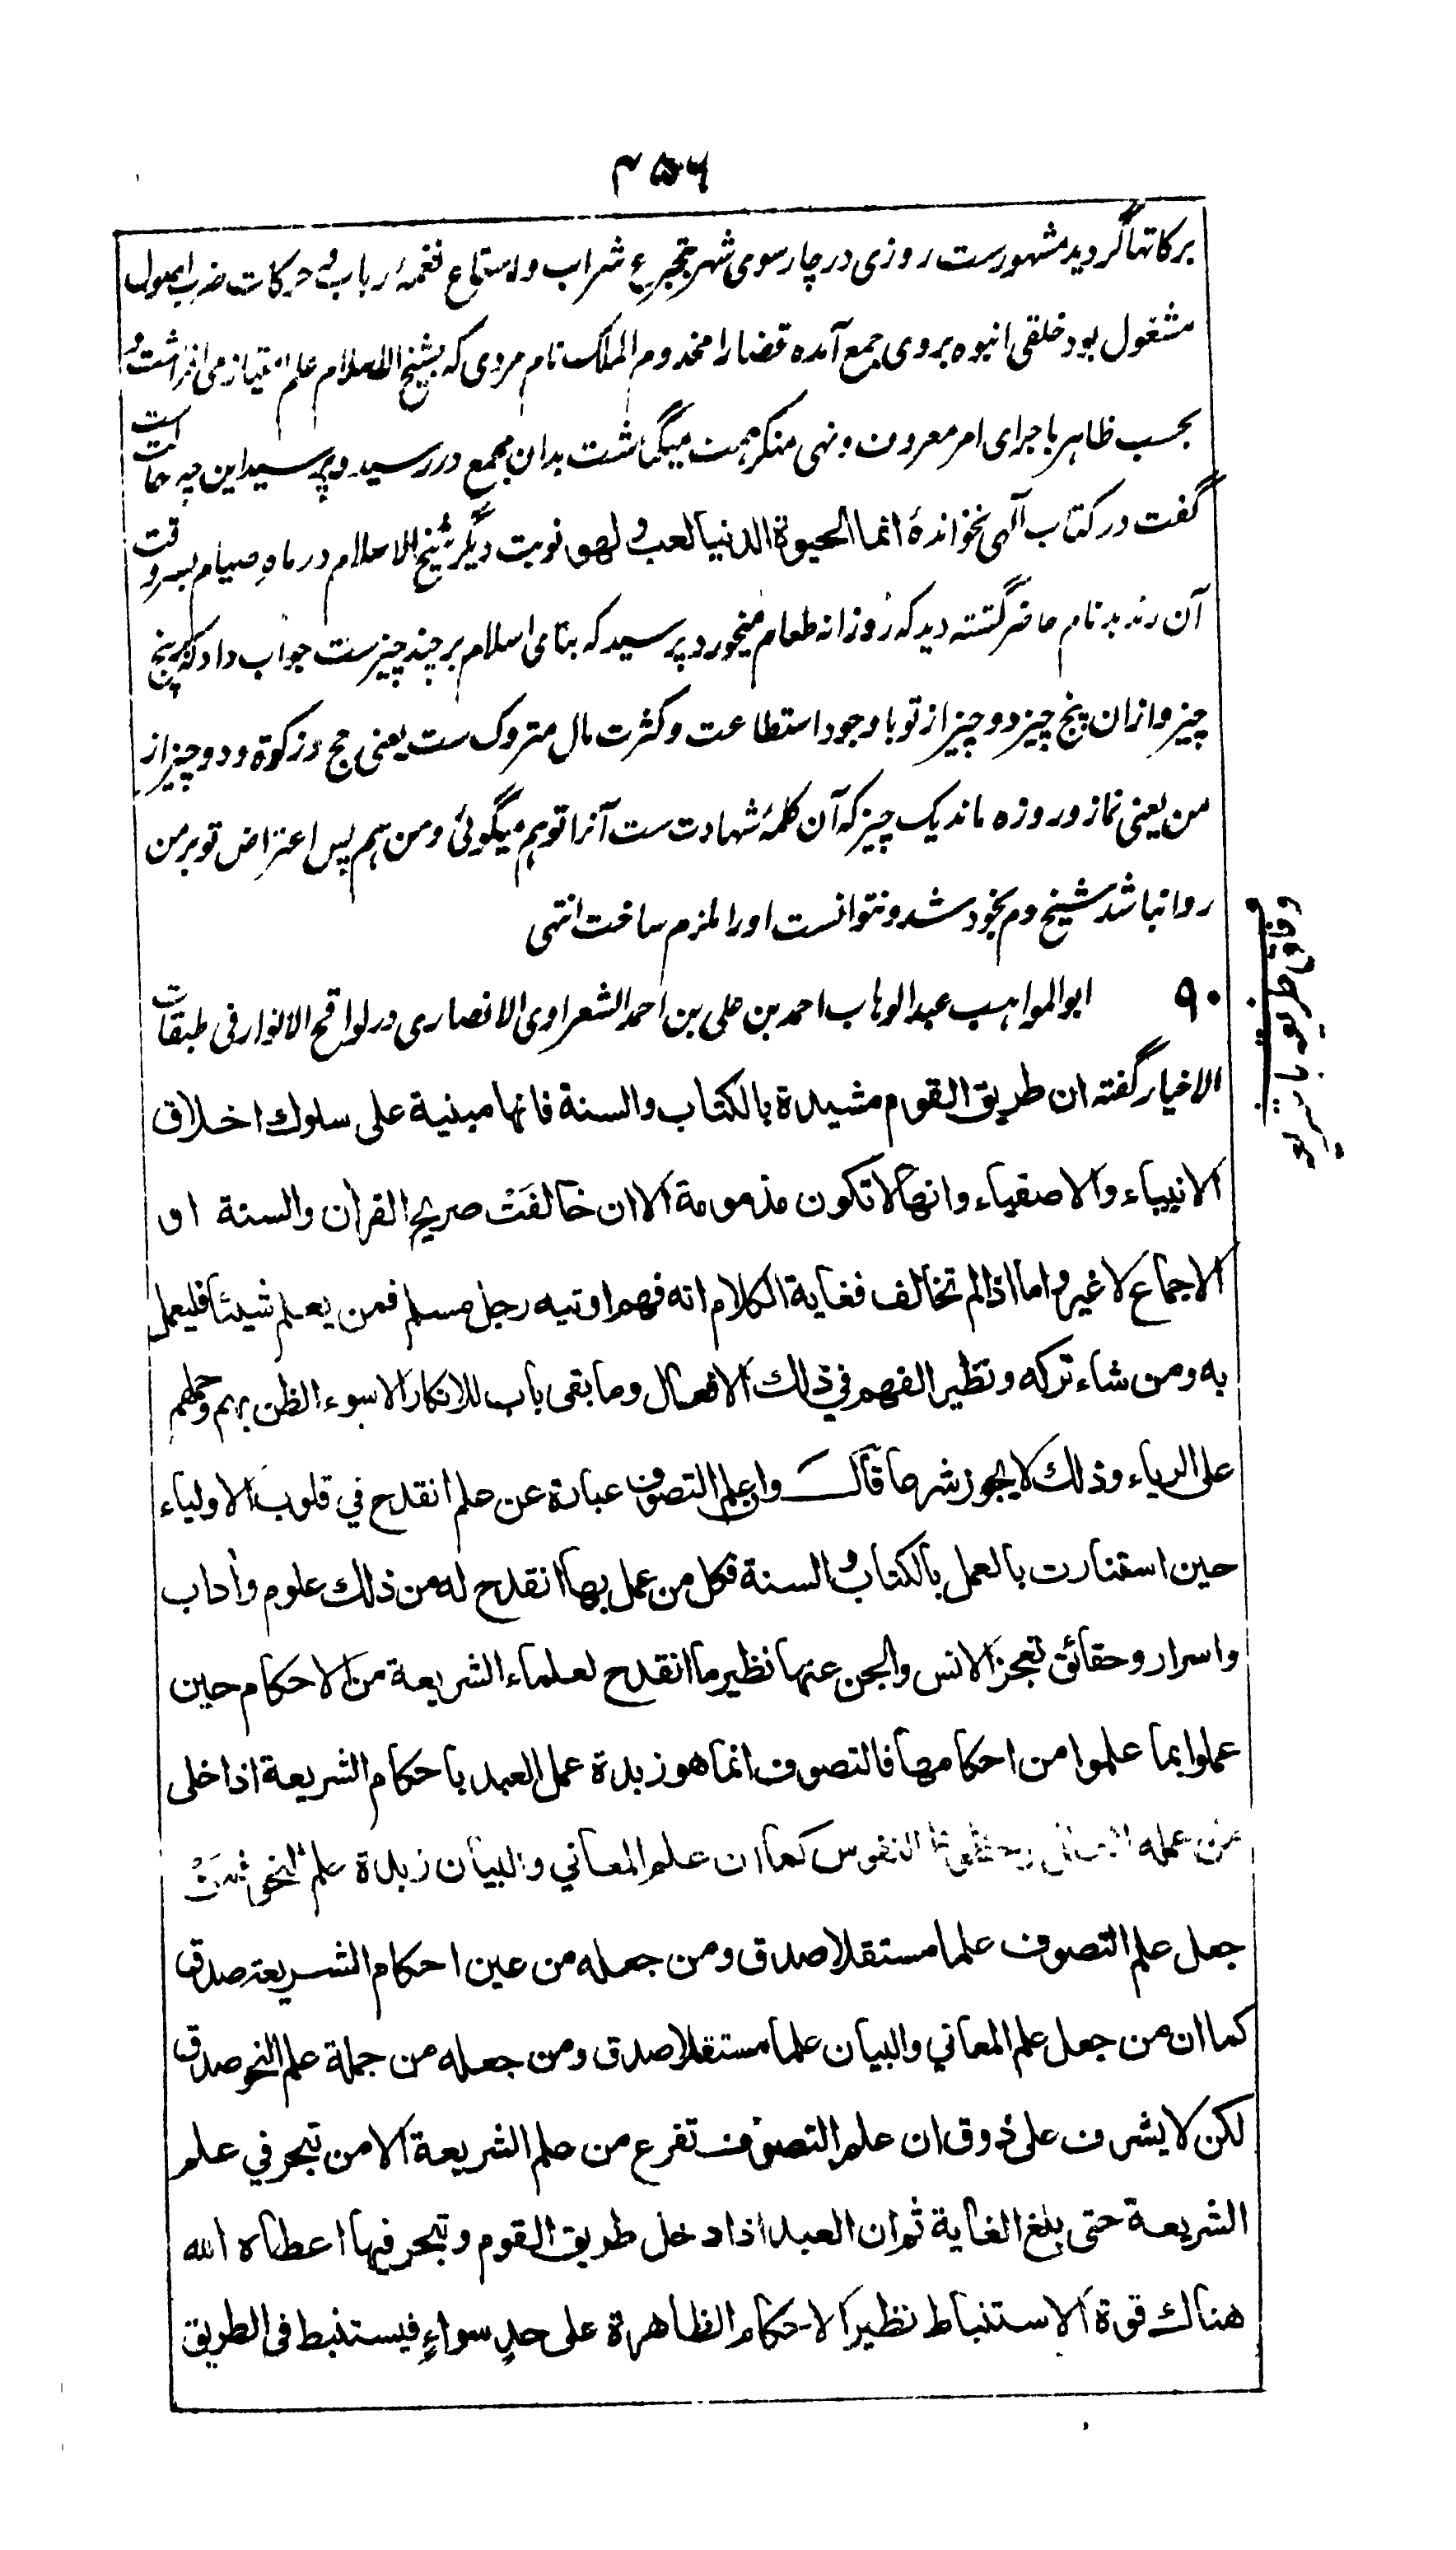 ۴۵۶
برکاتها گردید مشهورست روزی در چارسوی شهر بتجرع شراب و استماع نغمهٔ رباب و حرکات ضرب اصول
مشغول بود خلقی انبوه بروی جمع آمده قضا را مخدوم الملک نام مردی که بشیخ الاسلام علم امتیاز می افراشت و
بحسب ظاهر با جرای امر معروف و نهی منکر همت میگماشت بدان مجمع در رسید و پرسید این چه حالت است
گفت در کتاب آلهی نخواندهٔ انما الحیوة الدنیا لعب و لهو نوبت دیگر شیخ الاسلام در ماه صیام بسر وقت
آن رند بدنام حاضر گشته دید که روزانه طعام میخورد پرسید که بنای اسلام بر چند چیزست جواب داد که بر پنج
چیز و ازان پنج چیز دو چیز از تو با وجود استطاعت و کثرت مال متروک ست یعنی حج و زکوة و دو چیز از
من یعنی نماز و روزه ماند یک چیز که آن کلمهٔ شهادت ست آنرا تو هم میگوئی و من هم پس اعتراض تو بر من
روا نباشد شیخ دم بخود شد و نتوانست او را ملزم ساخت انتهی
۹۰ ابو المواهب عبد الوهاب احمد بن علی بن احمد الشعراوی الانصاری در لواقح الانوار فی طبقات
الاخیار گفته ان طريق القوم مشيدة بالكتاب والسنة فانها مبنية على سلوك اخلاق
الانبياء والاصفياء وانها لا تكون مذمومة الا ان خالفَتْ صريح القران والسنة او
الاجماع لا غير واما اذا لم تخالف فغاية الكلام انه فهم اوتيه رجل مسلم فمن يعلم شيئا فليعمل
به ومن شاء تركه ونظير الفهم في ذلك الافعال وما بقى باب للانكار الا سوء الظن بهم وحملهم
على الرياء وذلك لا يجوز شرعا قال وان علم التصوف عبارة عن علم انقدح في قلوب الاولياء
حين استنارت بالعمل بالكتاب والسنة فكل من عمل بها انقدح له من ذلك علوم وأداب
واسرار وحقائق تعجز الانس والجن عنها نظير ما انقدح لعلماء الشريعة من الاحكام حين
عملوا بما علموا من احكامها فالتصوف انما هو زبدة عمل العبد باحكام الشريعة اذا خلى
من عمله النفوس كما ان علم المعاني والبيان زبدة علم النحو
جعل علم التصوف علما مستقلا صدق ومن جعله من عين احكام الشريعة صدق
كما ان من جعل علم المعاني والبيان علما مستقلا صدق ومن جعله من جملة علم النحو صدق
لكن لا يشرف على ذوق ان علم التصوف تفرع من علم الشريعة الا من تبحر في علم
الشريعة حتى بلغ الغاية ثم ان العبد اذا دخل طريق القوم وتبحر فيها اعطاه الله
هناك قوة الاستنباط نظير الاحكام الظاهرة على حدٍ سواءٍ فيستنبط في الطريق